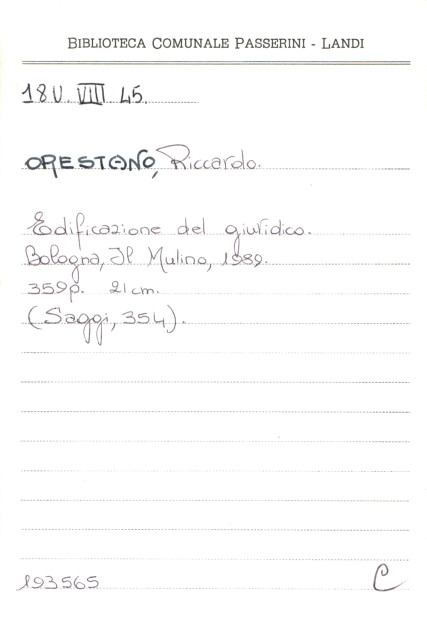 BIBLIOTECA COMUNALE PASSERINI - LANDI
18U. VIII 45.
ORESTANO, Riccardo.
Edificazione del giuridico.
Bologna, Il Mulino, 1989.
359p. 21 cm.
(Saggi, 354).
193565 C